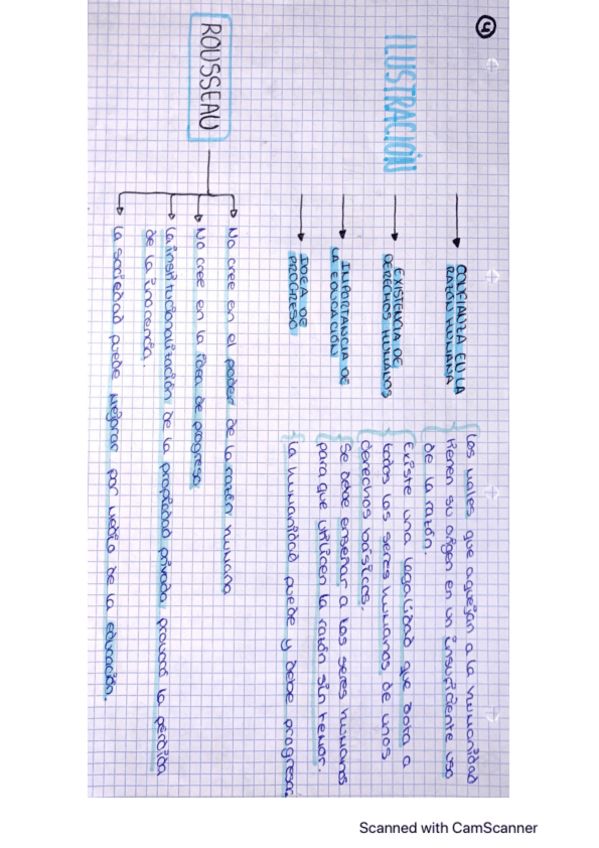 4
ILUSTRACIÓN
CONFIANZA EN LA
RAZÓN HUMANA
Los males que aquejan a la humanidad
tienen su origen en un insuficiente uso
de la razón.
EXISTENCIA DE
DERECHOS HUMANOS
Existe una legalidad que dota a
todos los seres humanos de unos
derechos básicos.
IMPORTANCIA DE
LA EDUCACIÓN
Se debe enseñar a los seres humanos
para que utilicen la razón sin temor.
IDEA DE
PROGRESO
La humanidad puede y debe progresar
ROUSSEAU
No cree en el poder de la razón humana
No cree en la idea de progreso
La institucionalización de la propiedad privada provocó la pérdida
de la inocencia.
La sociedad puede mejorar por medio de la educación.
Scanned with CamScanner